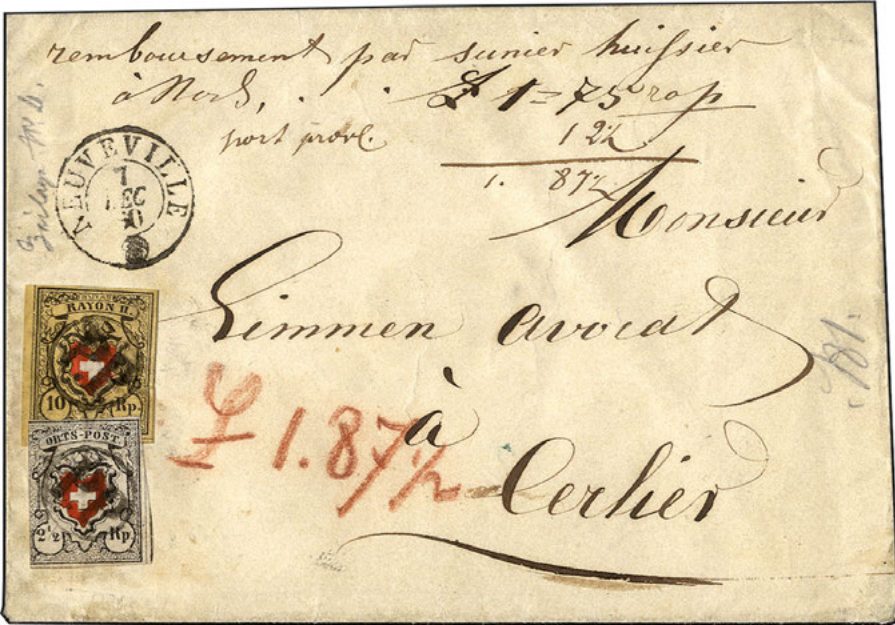 remboursement par sunier huissier
à Nods, . . £ 1 = 75 rap
port prov. 12½
1. 87½
NEUVEVILLE
7
DEC
50
Monsieur
Gimmen avocat
à
Cerlier
£ 1.87½
181.
RAYON II.
10 Rp.
ORTS-POST.
2½ Rp.